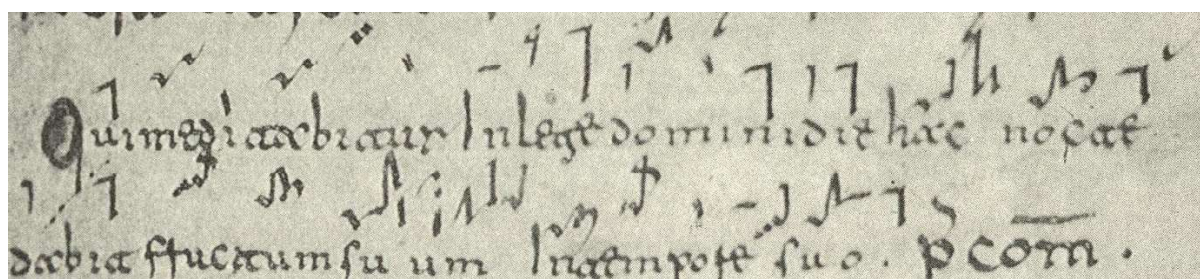 Qui meditabitur In lege domini die hac nocte
dabit fructum su um In tempore suo. p com̅.